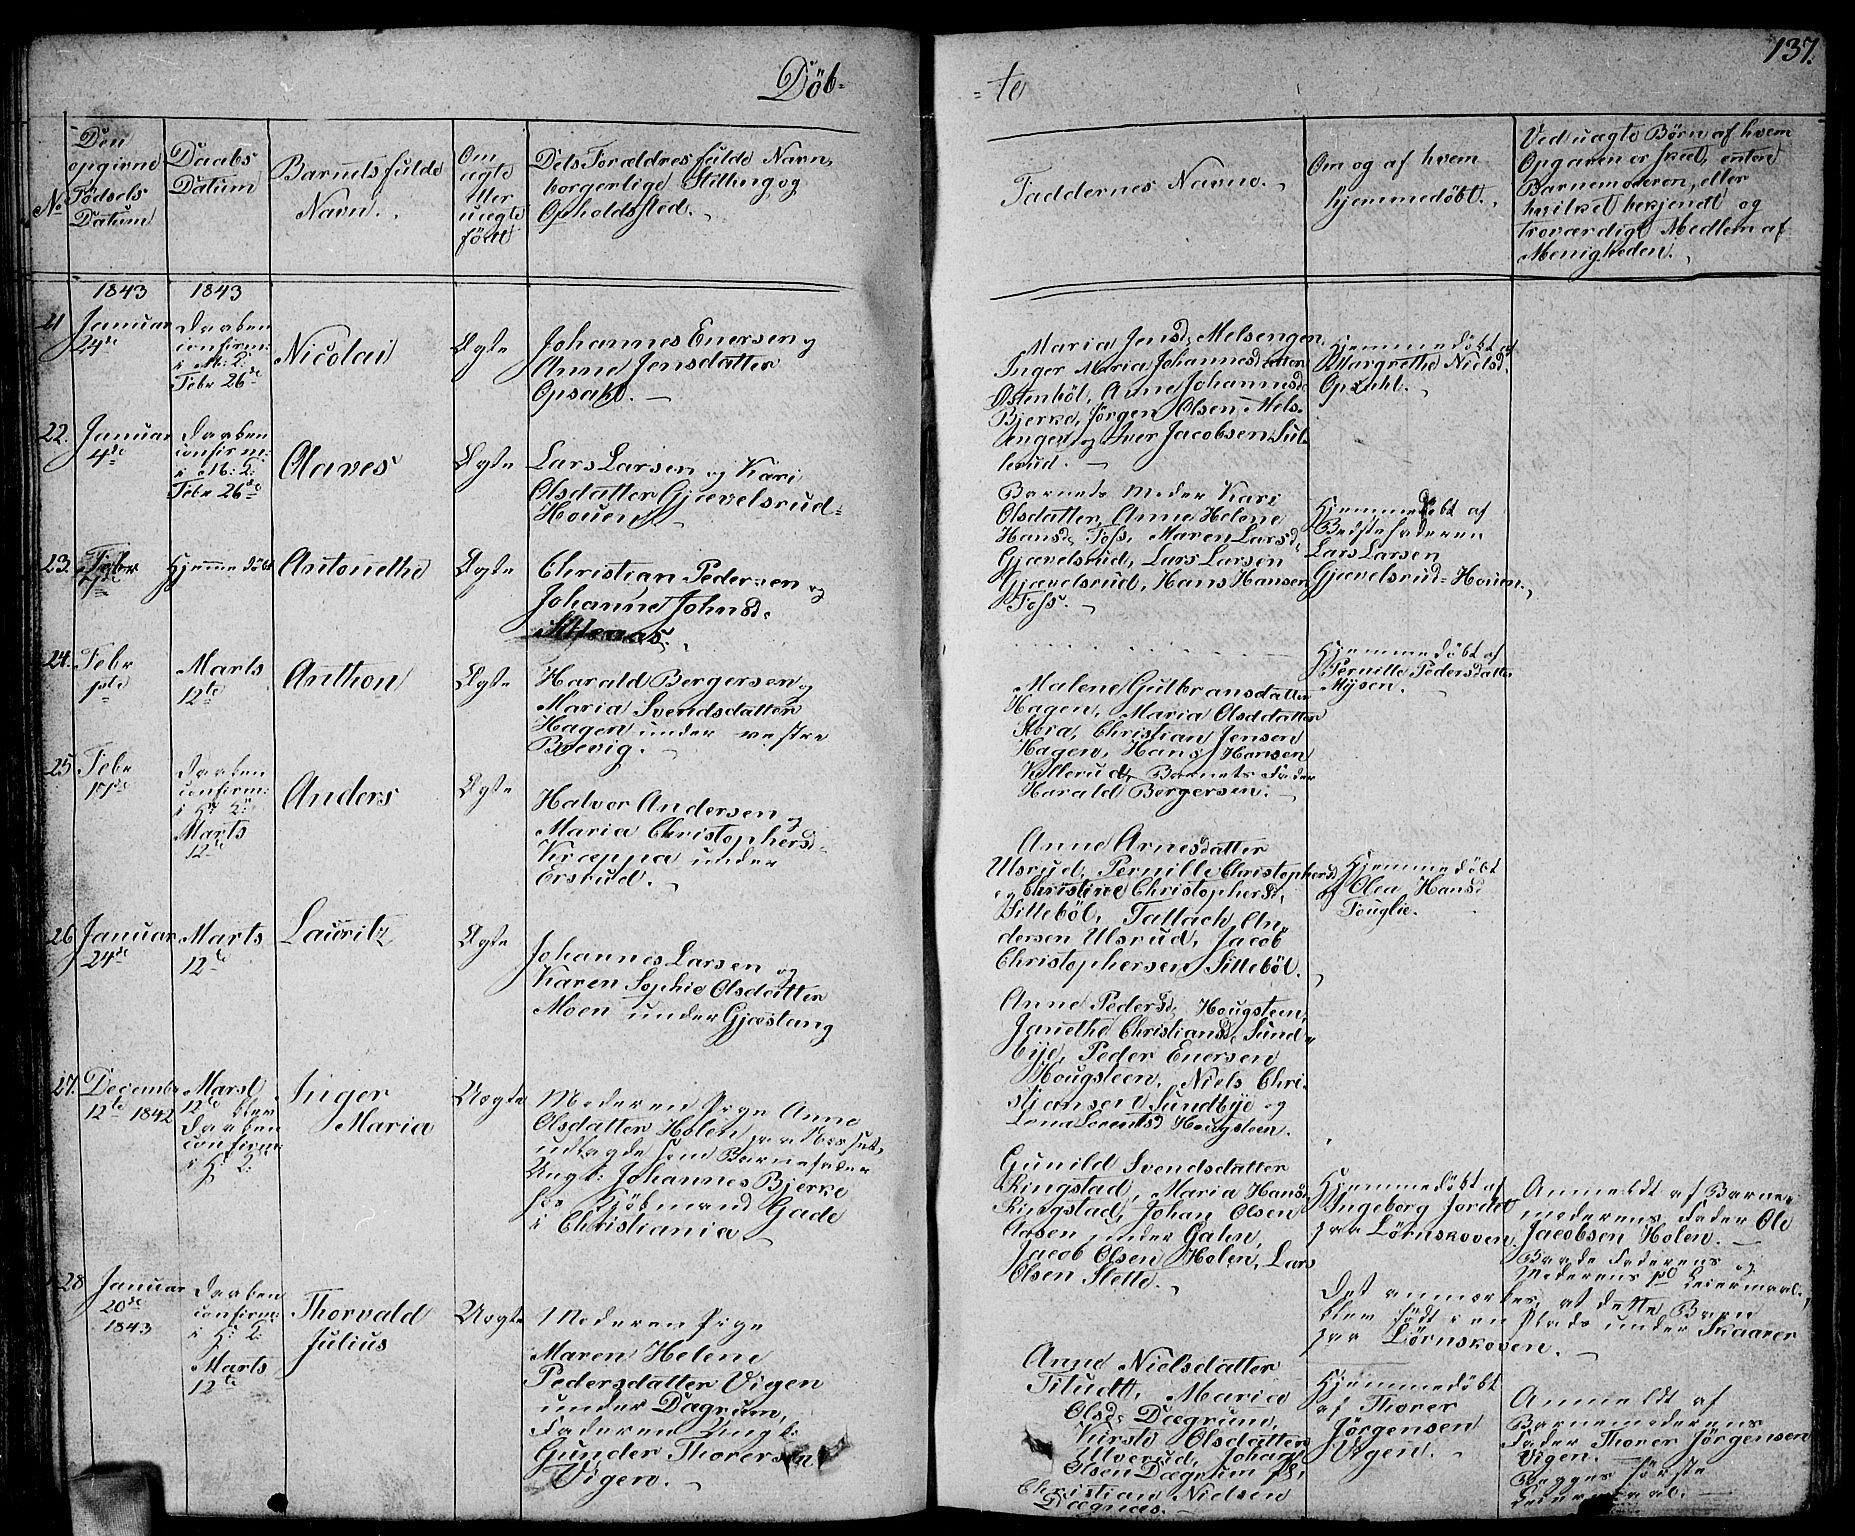 Döb-
=te
137.
No
Den
opgivne
Fødsels
Datum
Daabs
Datum
Barnets fulde
Navn.
Om
ægte
eller
uægte
född
Dets Forældres fulde Navn,
borgerlige Stilling og
Opholdssted.
Faddernes Navne.
Om og af hvem
hjemmedöbt.
Ved uægte Børn af hvem
Opgaven er skeet, enten
Barnemoderen, eller
hvilket bekjendt og
troværdigt Medlem af
Menigheden.
1843
1843
21
Januar
24de
Daaben
confirm:
i M: K:
Febr 26de
Nicolai
Ægte
Johannes Enersen og
Anne Jensdatter
Opsahl.
Maria Jensd. Melsengen
Inger Maria Johannesdatter
Ostenböl, Anne Johannesd.
Bjerke, Jörgen Olsen Mels-
engen og Iver Jacobsen Sul-
lerud.
Hjemmedöbt af
Margrethe Nielsd.
Opsahl.
22.
Januar
4de
Daaben
confirm:
i M: K:
Febr 26de
Olaves
Ægte
Lars Larsen og Kari
Olsdatter Gjævelsrud-
Houen
Barnets Moder Kari
Olsdatter, Anne Helene
Hansd. Foss, Maren Larsd.
Gjævelsrud, Lars Larsen
Gjævelsrud, Hans Hansen
Foss.
Hjemmedöbt af
Bedstefaderen
Lars Larsen
Gjævelsrud-Houen.
23.
Febr
Hjemmedöbt
Antonethe
Ægte
Christian Pedersen og
Johanne Johnsd.
Hjemmedöbt af
Pernille Pedersdatter
Mysen.
24.
Febr
1ste
Marts
12te
Anthon
Ægte
Harald Bergersen og
Maria Svendsdatter
Hagen under vestre
Boevig.
Malene Gulbransdatter
Hagen, Maria Olsddatter
Abra, Christian Jensen
Hagen, Hans Hansen
Killerud, Barnets Fader
Harald Bergersen.
25
Febr
17de
Daaben
confirm:
i H: K:
Marts
12te
Anders
Ægte
Halvor Andersen og
Maria Christophersd.
Kræppa under
Ersrud.
Anne Arnesdatter
Ulsrud, Pernille Christophersd
og Christine Christophersd,
Sitteböl, Tallach An-
dersen Ulsrud, Jacob
Christophersen Sitteböl.
Hjemmedöbt
af Olea Hansd
Fouglie.
26
Januar
24de
Marts
12te
Lauritz
Ægte
Johannes Larsen og
Karen Sophie Olsdatter
Moen under Gjæslang
Anne Pedersd, Hougsteen,
Janethe Christiansd, Sund-
bye, Peder Enersen
Hougsteen, Niels Chri-
stjansen Sundbye og
Lena Lorentsd Hougsteen.
27.
December
12te 1842
Marst
12te blev
Daaben
confirm:
i H: K:
Inger
Maria
Uægte
Moderen Pige Anne
Olsdatter Holen paa Næset,
udlagde som Barnefader
Ungk: Johannes Bjerke
hos Kjöbmand Gade
i Christiania
Gunild Svendsdatter
Ringstad, Maria Hansd
Ringstad, Johan Olsen
Aasen under Gahn,
Jacob Olsen Holen, Lars
Olsen Slette.
Hjemmedöbt af
Ingeborg Jordet
paa Lørnskoven
Anmeldt af Barne-
moderens Fader Ole
Jacobsen Holen.
Baade Faderens og
Moderens 1ste Leiermaal.
Det anmærkes, at dette Barn
blev född i en Plads under Skaarer
paa Lørnskoven.
28
Januar
20de
1843
Daaben
confirm:
i H: K:
Marts
12te
Thorvald
Julius
Uægte
Moderen Pige
Maren Helene
Pedersdatter Vigen
under Dægrum,
Faderen Ungk:
Gunder Thorersen
Vigen.
Anne Nielsdatter
Titudt, Maria
Olsd. Dægrum,
Kirste Olsdatter
Ulverud, Johan
Olsen Dægrum og
Christian Nielsen
Dægnæs.
Hjemmedöbt
af Thorer
Jörgensen
Vigen.
Anmeldt af
Barnemoderens
Fader Thorer Jörgensen
Vigen.
Begges første
Leiermaal.